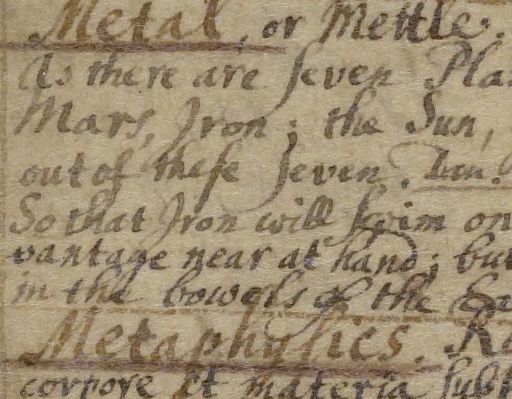 Metal, or Mettle.
As there are ſeven Pla
Mars, Iron; the Sun,
out of theſe ſeven. Lan.
So that Iron will ſwim on
vantage near at hand; but
in the bowels of the Ea
Metaphyſics.
corpore et materia ſubt